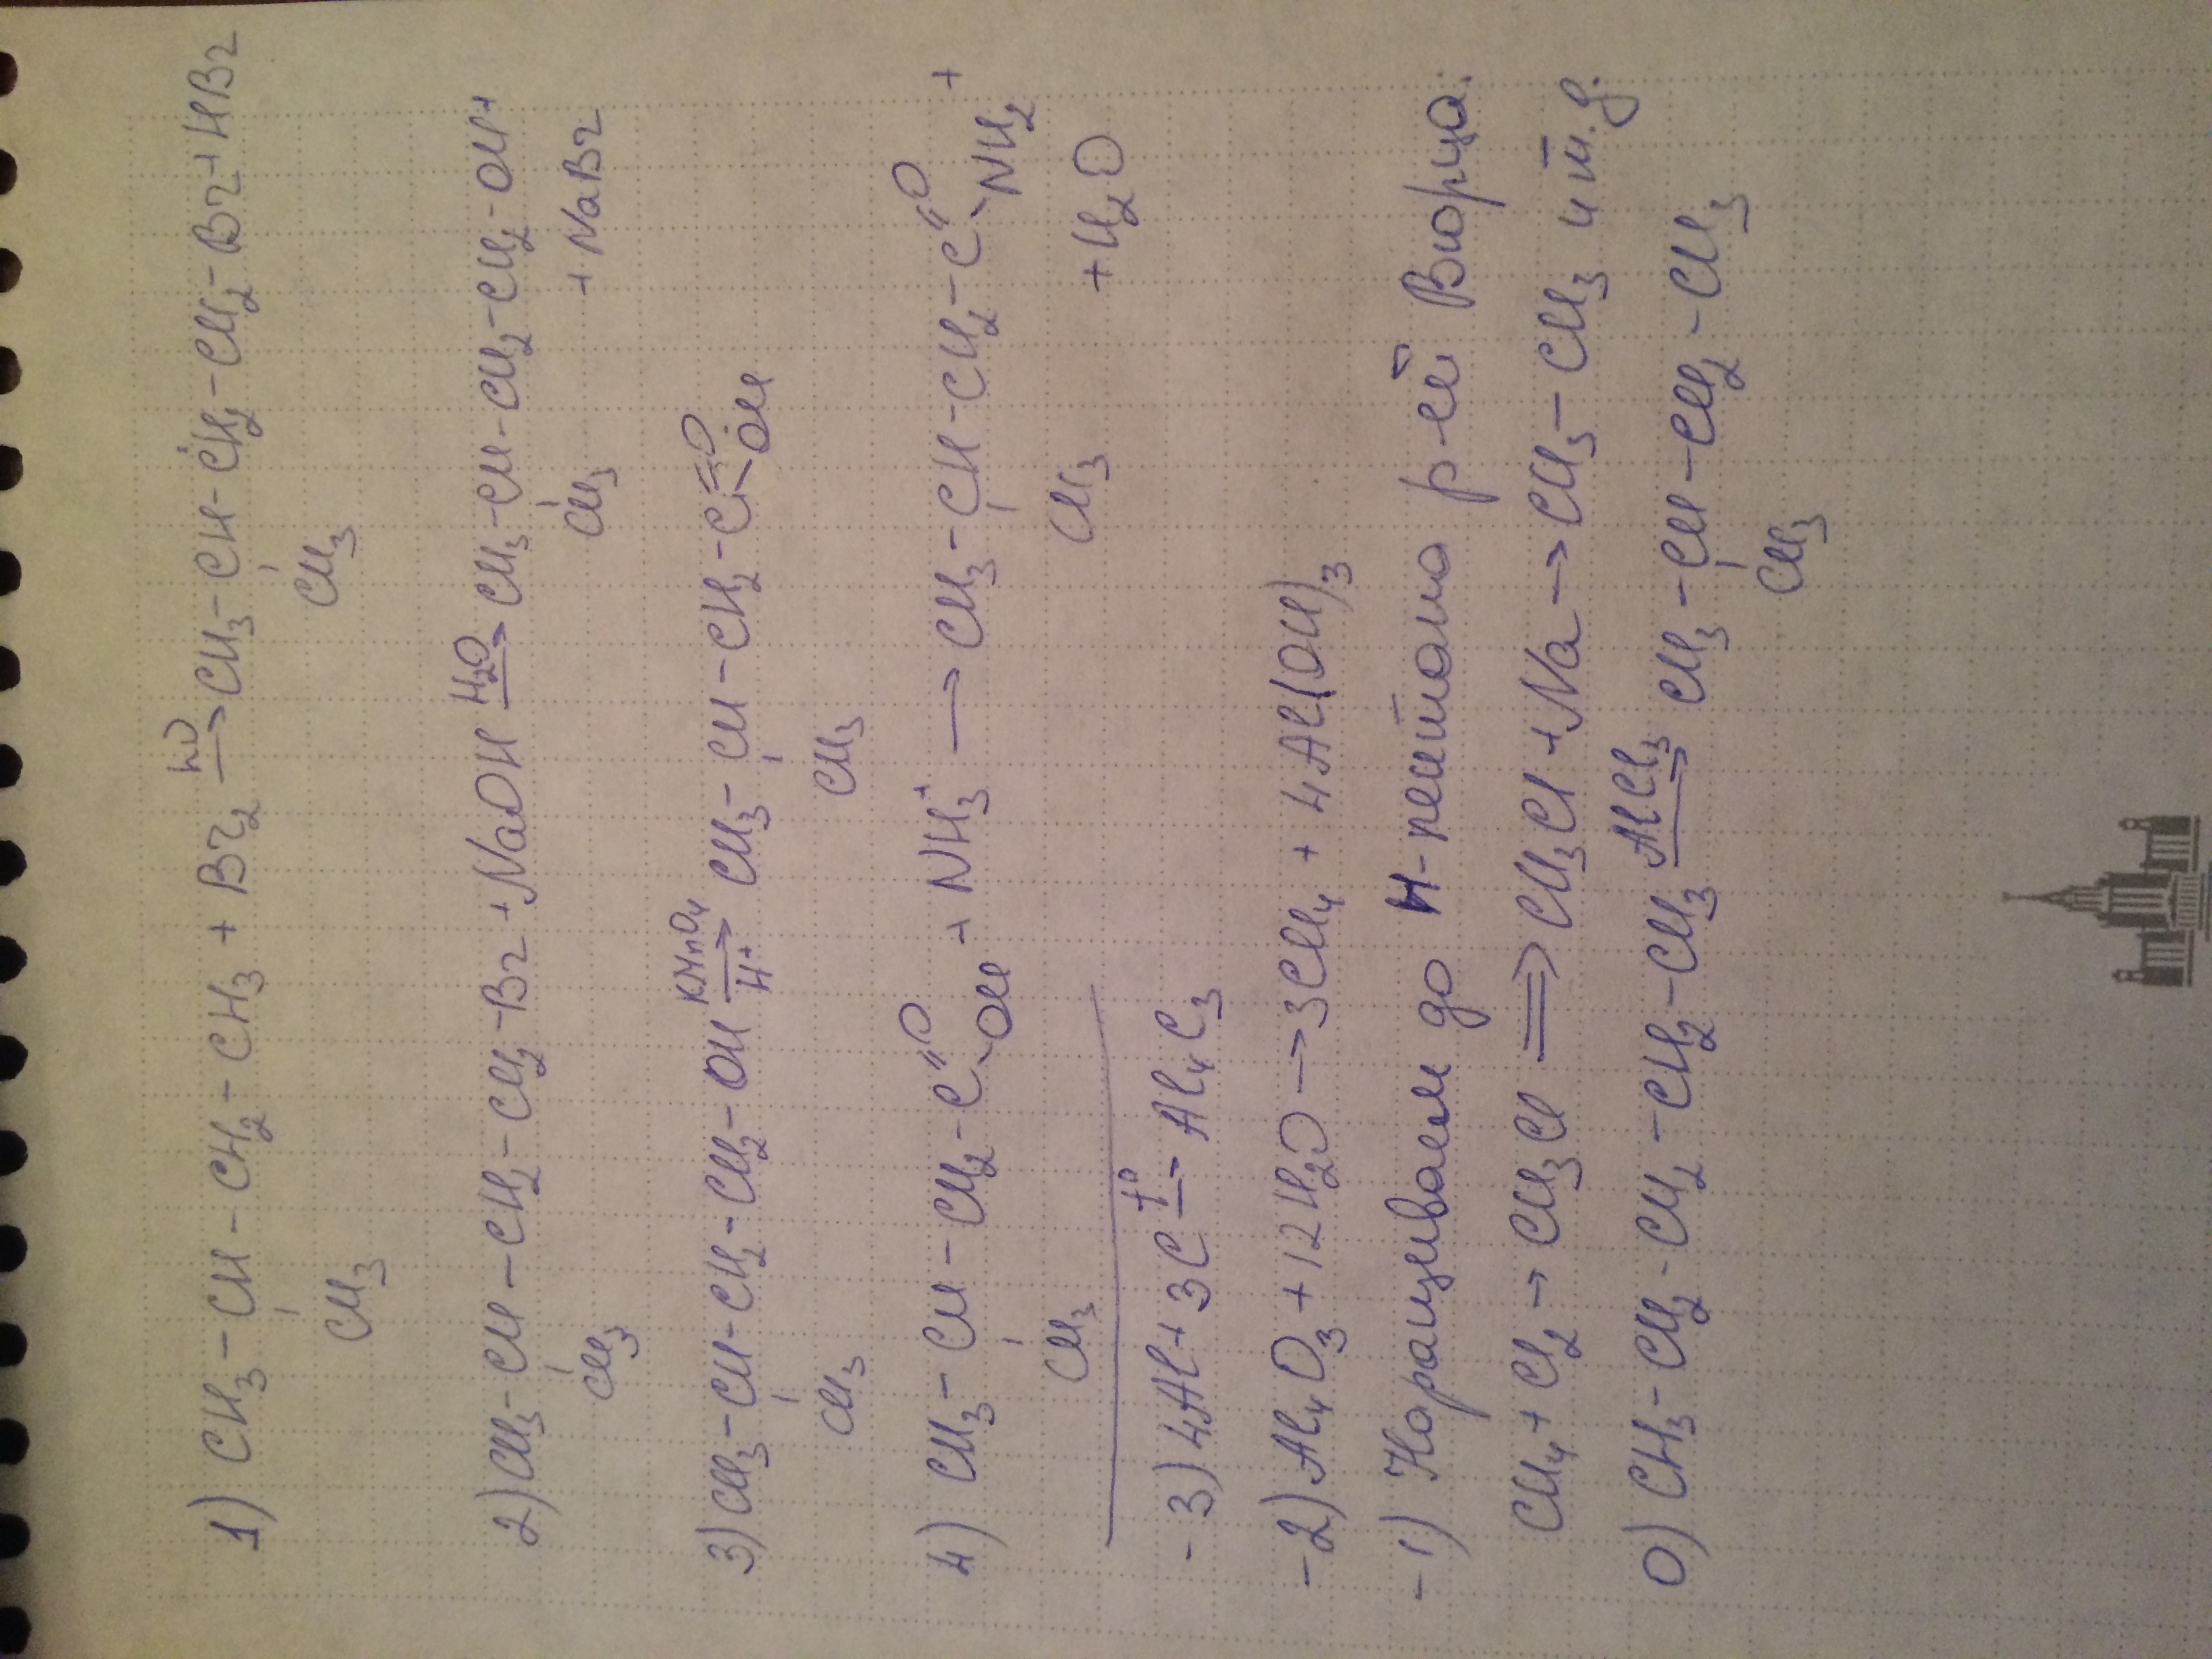 1) CH3-CH-CH2-CH3 + Br2 hν→ CH3-CH-CH2-CH2-Br+HBr
CH3 CH3
2) CH3-CH-CH2-CH2-Br+NaOH H2O→ CH3-CH-CH2-CH2-OH+
CH3 CH3 +NaBr
3) CH3-CH-CH2-CH2-OH KMnO4→ H+ CH3-CH-CH2-C=O
OH
CH3 CH3
4) CH3-CH-CH2-C=O
OH + NH3 → CH3-CH-CH2-C=O
NH2 +
CH3 CH3 +H2O
-3) 4Al+3C t°→ Al4C3
-2) Al4O3+12H2O→3CH4+4Al(OH)3
-1) Наращиваем до н-пентана р-ей Вюрца.
CH4+Cl2→CH3Cl ⟹ CH3Cl+Na→CH3-CH3 и т.д.
0) CH3-CH2-CH2-CH2-CH3 AlCl3→ CH3-CH-CH2-CH3
CH3